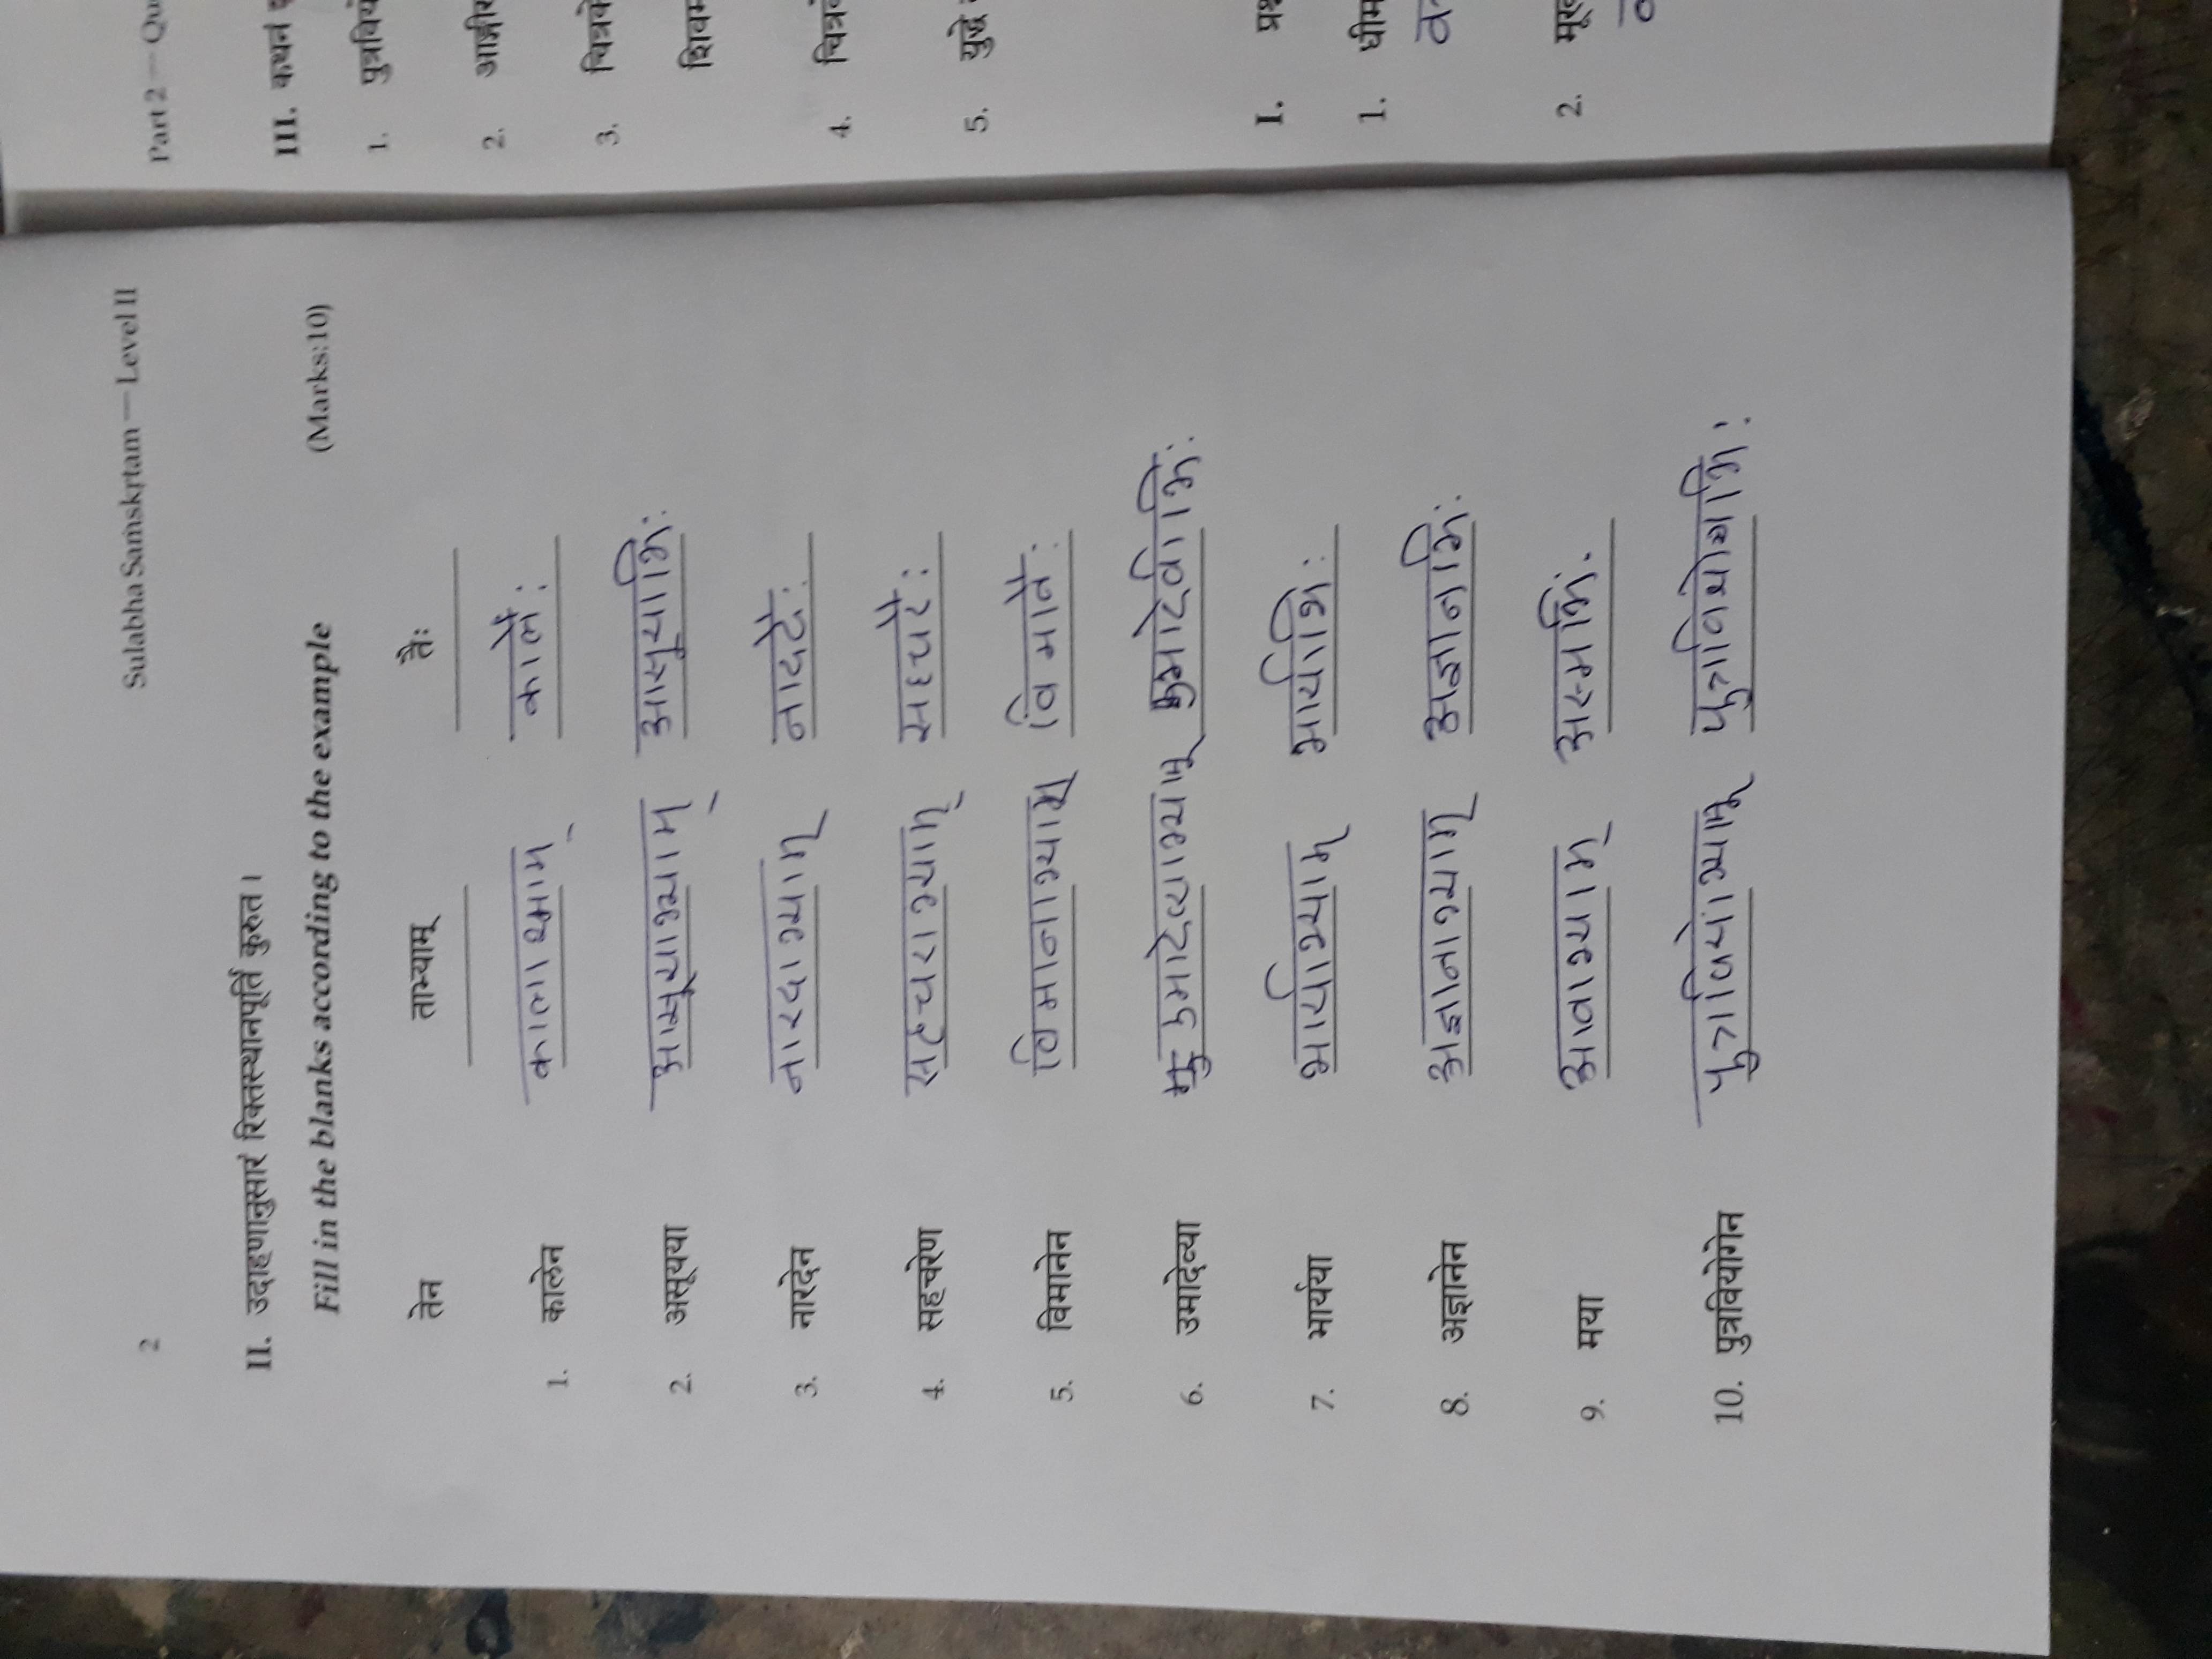 2 Sulabha Saṁskṛtam — Level II
II. उदाहणानुसारं रिक्तस्थानपूर्ति कुरुत ।
Fill in the blanks according to the example (Marks:10)
तेन ताभ्याम् तैः
1. कालेन कालाभ्माम् कालैः
2. असूयया आसूयाभ्याम् आसूयाभिः
3. नारदेन नारदाभ्याम् नाददैः
4. सहचरेण सहचराभ्याम् सहचरैः
5. विमानेन विमानाभ्याम् विमानैः
6. उमादेव्या उमादेव्याभ्याम् उमादेवीभिः
7. भार्यया भार्याभ्याम् भार्याभिः
8. अज्ञानेन अज्ञानाभ्याम् अज्ञानभिः
9. मया आवाभ्याम् अस्मभिः
10. पुत्रवियोगेन पुत्रवियोभ्याम् पुत्रवियोगभिः
Part 2 — Qu
III. कथनं
1. पुत्रविय
2.
3.
शिवम
4.
5. युद्धे
I.
1. धीम
2.